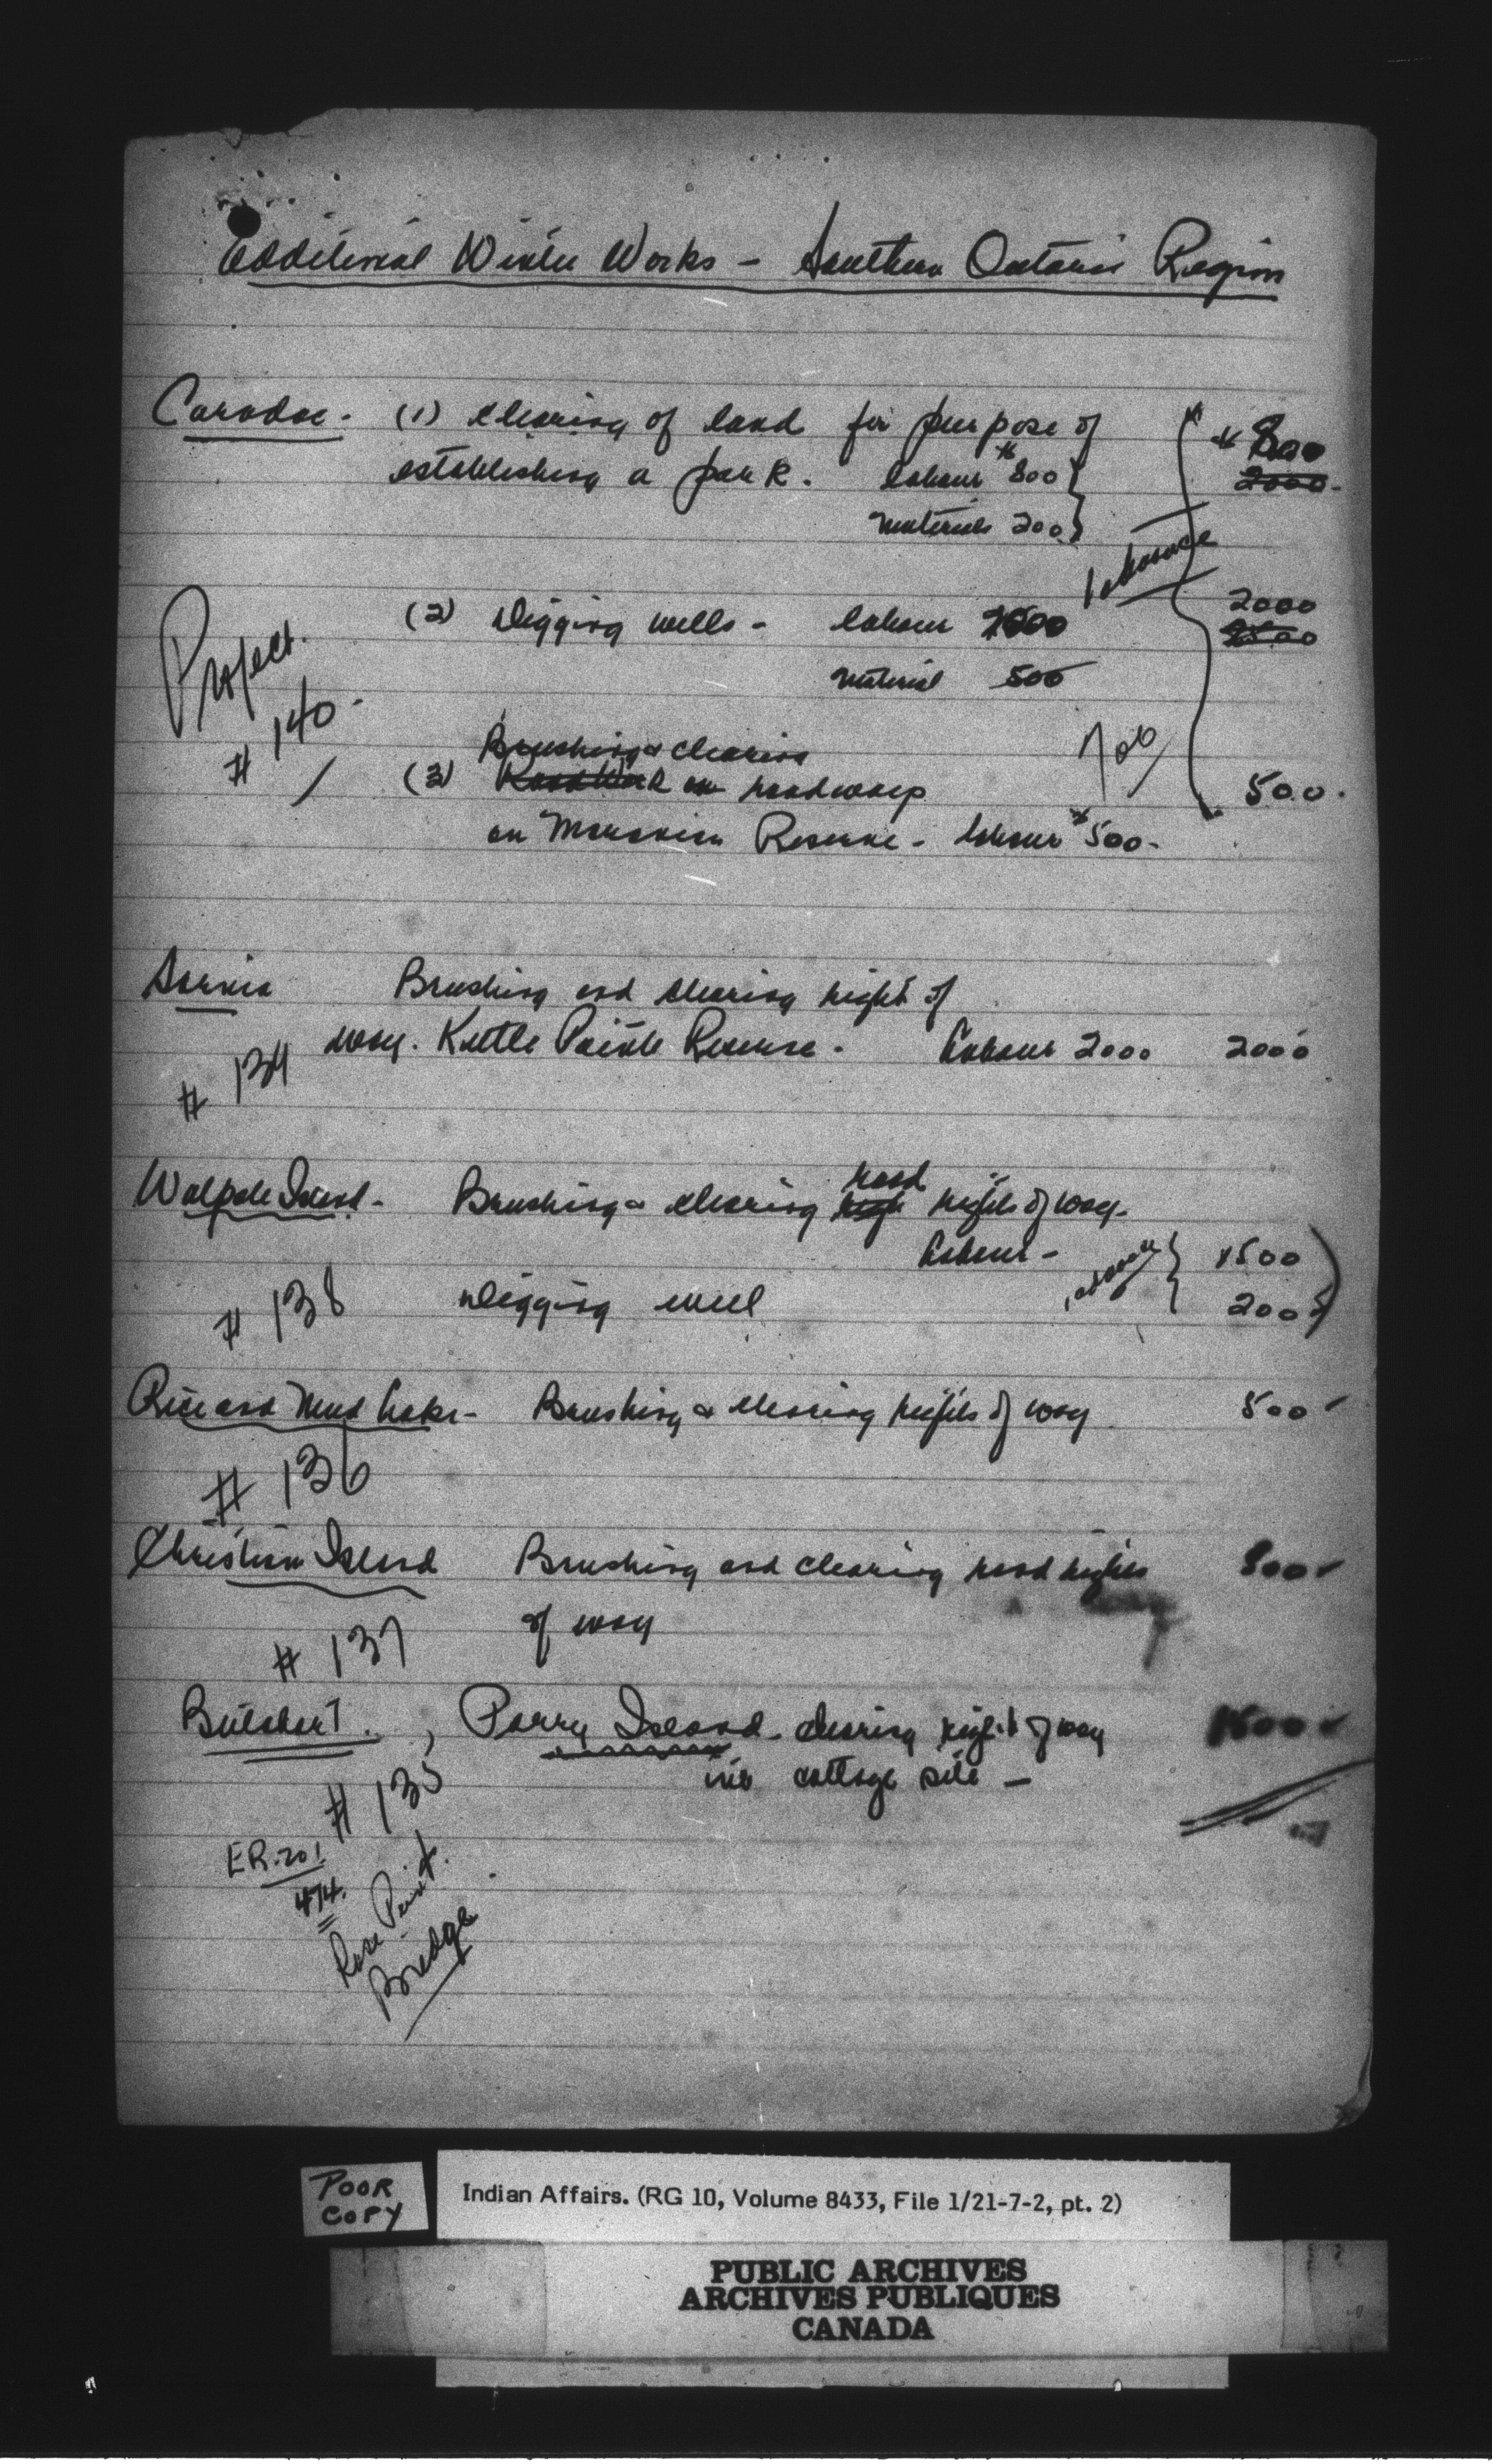 Additional Winter Works - Southern Ontario Region
Caradoc - (1) Clearing of land for purpose of
establishing a park. Labour $800 $800
2000 -
Materials 200
(2) Digging wells - labour 2000 2000
2500
material 500
Project
# 140 -
Brushing & Clearing
(3) Road Work on roadways 500 -
on Moravian Reserve - labour $500 -
Sarnia Brushing and clearing right of
way. Kettle Point Reserve - Labour 2000 2000
# 134
Walpole Island - Brushing & clearing road rights of way -
Labour - 1500
# 138 Digging well 200
Rice and Mud Lake - Brushing & clearing rights of way 500
# 136
Christian Island Brushing and clearing road rights 800
of way
# 137
Parry Island - clearing right of way 1500
in cottage site -
# 135
ER. 201
474
Rose Point
Bridge
POOR
COPY
Indian Affairs. (RG 10, Volume 8433, File 1/21-7-2, pt. 2)
PUBLIC ARCHIVES
ARCHIVES PUBLIQUES
CANADA